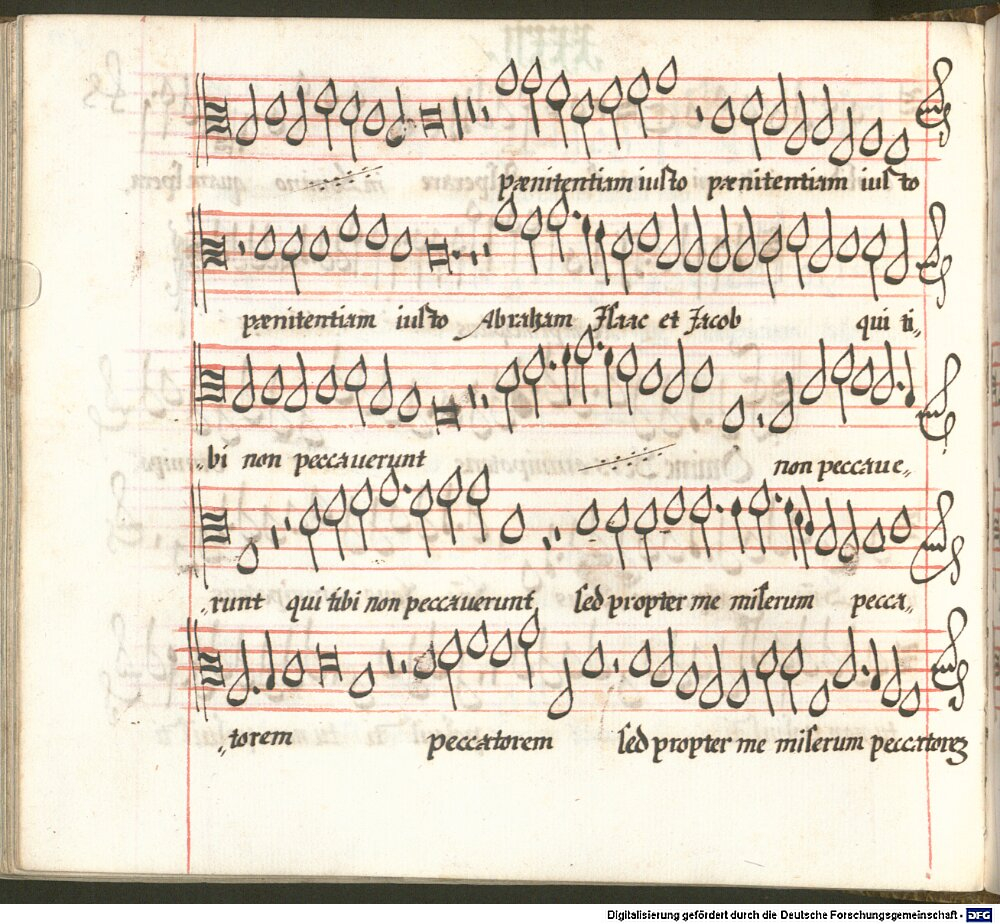 pænitentiam iusto pænitentiam iusto
pænitentiam iusto Abraham Isaac et Iacob qui ti„
„bi non peccauerunt non peccaue„
„runt qui tibi non peccauerunt sed propter me miserum pecca„
„torem peccatorem sed propter me miserum peccatorez
Digitalisierung gefördert durch die Deutsche Forschungsgemeinschaft - DFG